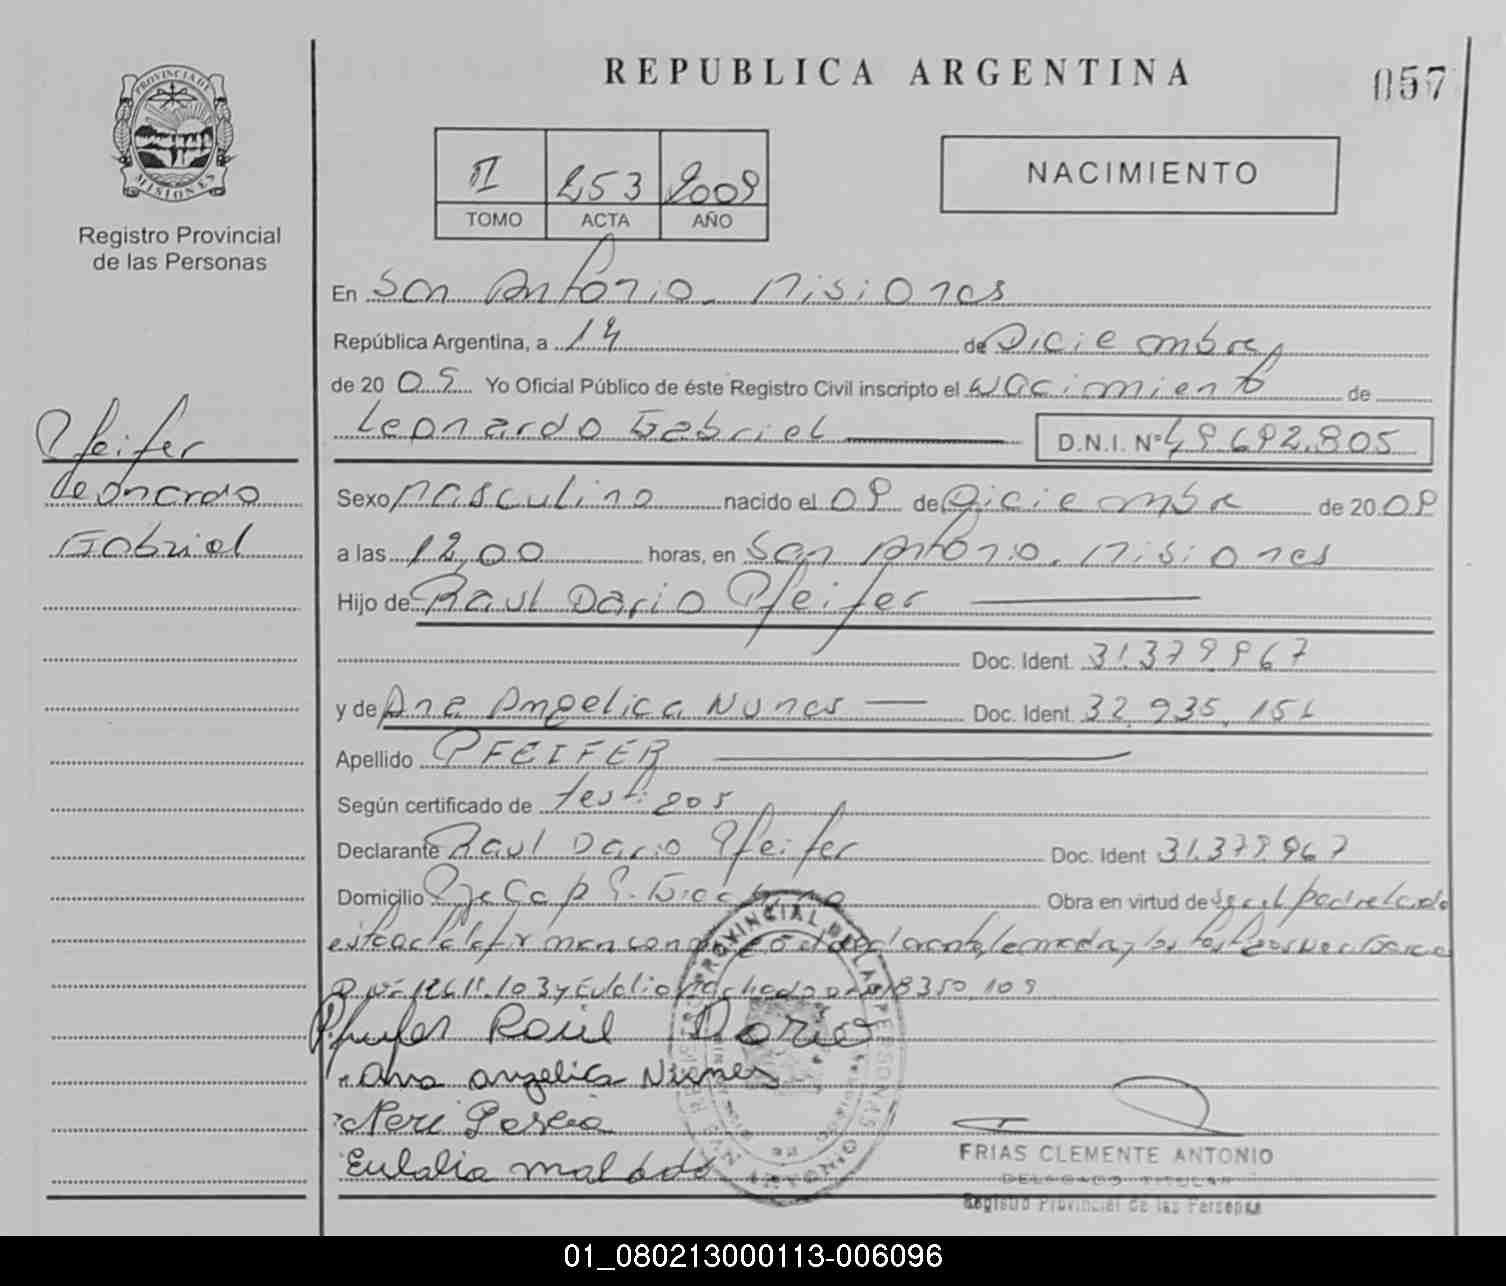 REPUBLICA ARGENTINA
057
PROVINCIA DE
MISIONES
Registro Provincial
de las Personas
II 253 2009
TOMO ACTA AÑO
NACIMIENTO
En San Antonio. Misiones
República Argentina, a 14 de Diciembre
de 20 09 Yo Oficial Público de éste Registro Civil inscripto el Nacimiento de
Leonardo Gabriel D.N.I. Nº 49.692.805
Pfeifer
Leonardo
Gabriel
Sexo Masculino nacido el 09 de Diciembre de 20 09
a las 12,00 horas, en San Antonio. Misiones
Hijo de Raul Dario Pfeifer
Doc. Ident. 31.379.967
y de Ana Angelica Nunes Doc. Ident. 32.935.151
Apellido PFEIFER
Según certificado de testigos
Declarante Raul Dario Pfeifer Doc. Ident 31.379.967
Domicilio Obra en virtud de
Pfeifer Raúl Dario
Ana Angelica Nunes
Neri
Eulalia
REGISTRO PROVINCIAL DE LAS PERSONAS
SAN ANTONIO
FRIAS CLEMENTE ANTONIO
DELEGADO TITULAR
Registro Provincial de las Personas
01_080213000113-006096